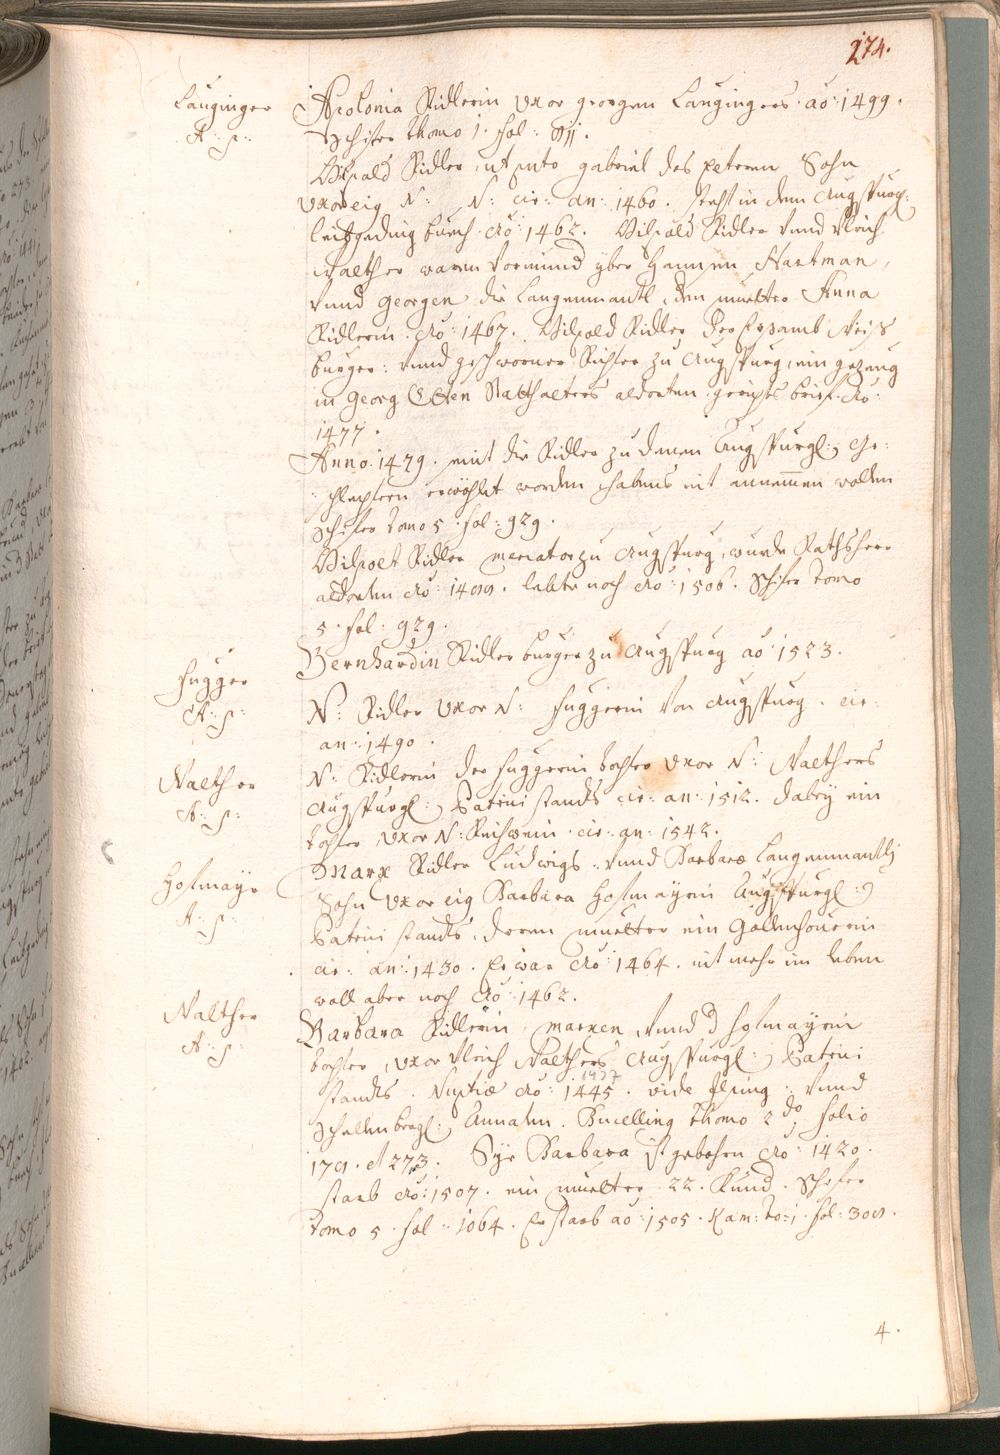 274.
Lauginger
A: P:
Apolonia Ridlerin vxor georgen Laugingers. aō: 1499.
Schifer thomo 1. fol:
Wilpald Ridler, ut puto gabriel des eltern Sohn
vxor eig N: N: cir: an: 1460. steht in dem Augspurg:
leibgeding buech. Aō: 1462. Wilpald Ridler vund Vlrich
Walther waren Vormund yber Hannsen Hartman,
vund Georgen die Langenmantl, den muetter Anna
Ridlerin. Aō: 1467. Wilpold Ridler der Ersamb Weiß
burger: vund geschworner Richter zu Augspurg, ein gezeug
in Georg Etten Statthalters aldorten gerichts brief. Aō:
1477.
Anno. 1479. mit die Ridler zu denen Augspurgl: Ge:
schlechtern erwöhlt worden, habens nit annemmen wollen
Schifer tomo 5. fol: 929.
Wilpolt Ridler mercator zu Augspurg, wurde Rathsherr
aldorten Aō: 1499. lebte noch Aō: 1506. Schifer tomo
5. fol: 929.
Bernhardin Ridler burger zu Augspurg aō: 1523.
Fugger
A: P:
N: Ridler vxor N: Fuggerin von Augspurg. cir:
an: 1490.
Walther
A: P:
N: Ridlerin der Fuggerin tochter vxor N: Walthers
Augspurgl: Patricistandts cir: an: 1512. dabey ein
tochter, vxor N: Reichwein. cir: an: 1542.
Hofmayr
A: P:
Marx Ridler Ludwigs: vund Barbaræ Langenmantlj
Sohn vxor eig Barbara Hofmayrin Augspurgl:
Patricistandts, deren muetter ein Gollenhoverin
cir: an: 1430. Er war Aō: 1464. nit mehr im leben
woll aber noch Aō: 1462.
Walther
A: P:
Barbara Ridlerin, marxen, vund d hofmayrin
tochter, vxor Vlrich Walthers Augspurgl: Patrici
standts. Nuptiæ Aō: 1445. vide vund
1437
Schellenbergl: Annalen. Bucelling thomo 2do folio
179. et 273. Dise Barbara ist gebohrn Aō: 1420.
starb Aō: 1507. ein muetter 22. Kind. Schifer
tomo 5. fol: 1064. Er starb aō: 1505. Kam: to: 1. fol: 309.
4.